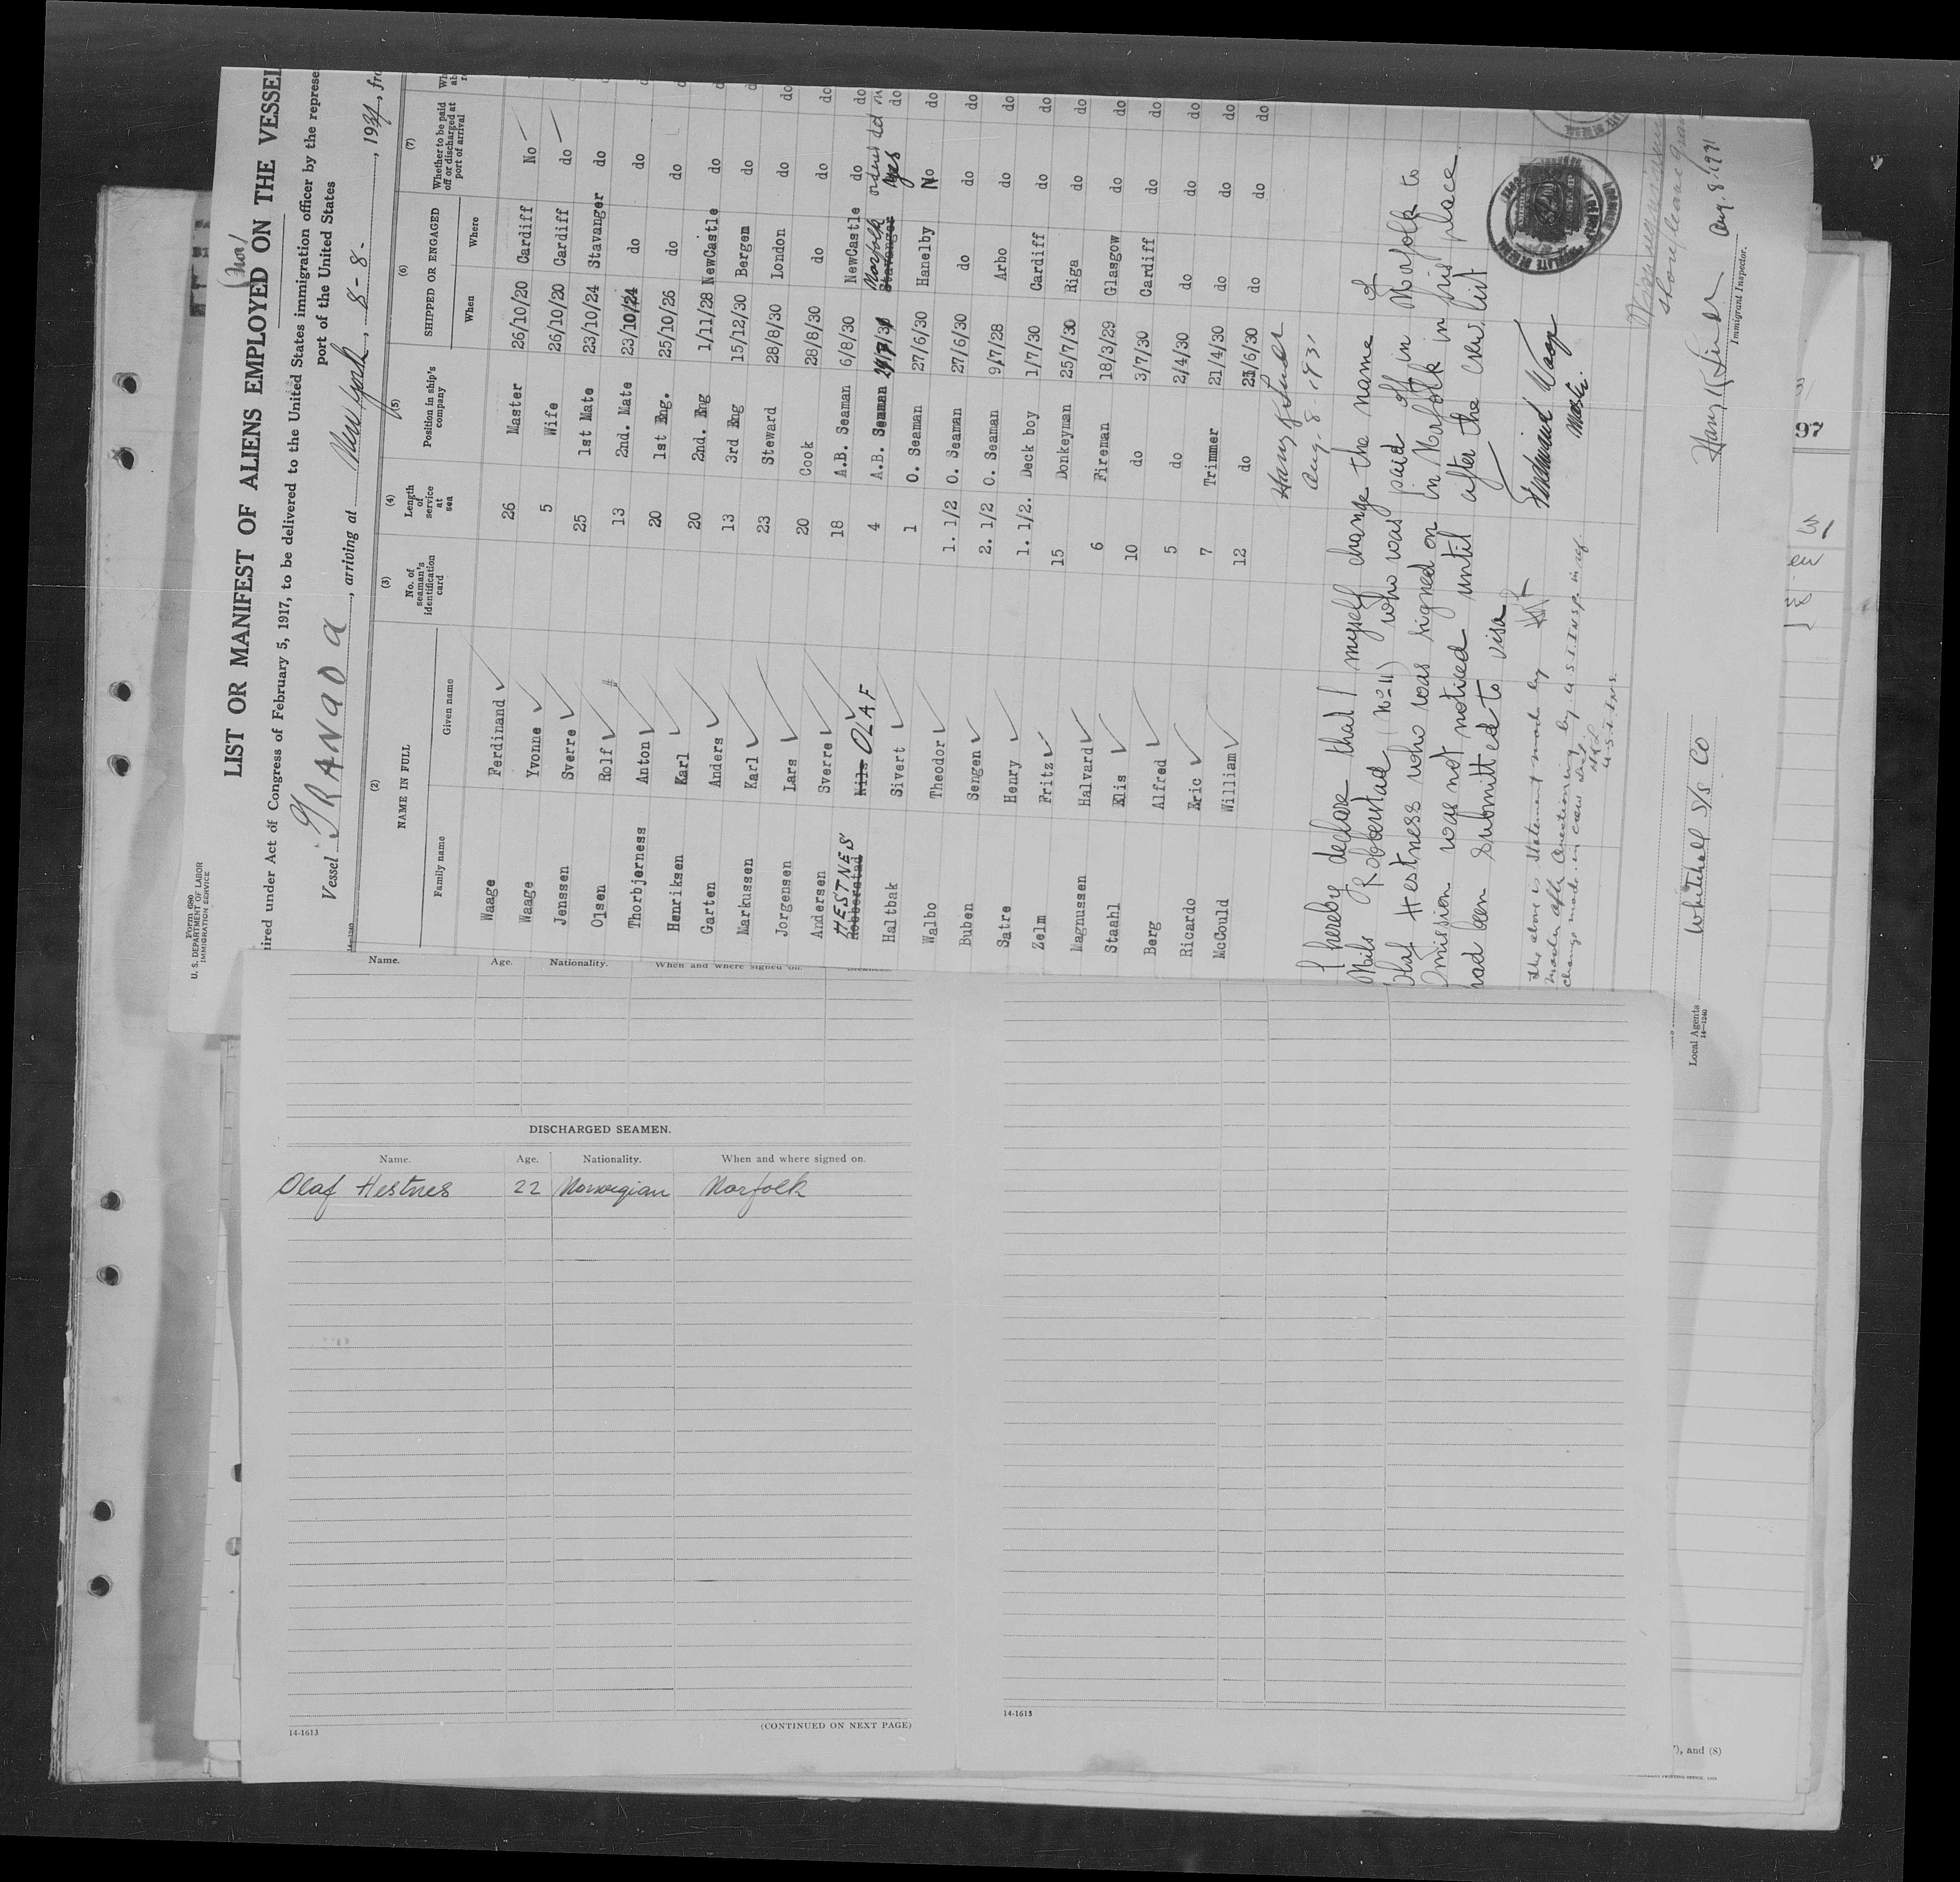 Form 680
U. S. DEPARTMENT OF LABOR
IMMIGRATION SERVICE
LIST OR MANIFEST OF ALIENS EMPLOYED ON THE VESSEL
ired under Act of Congress of February 5, 1917, to be delivered to the United States immigration officer by the represe
port of the United States
Vessel TRANODA, arriving at New York, 8-8-, 1931, fro
(2) (3) (4) (5) (6) (7)
NAME IN FULL No. of seaman's identification card Length of service at sea Position in ship's company SHIPPED OR ENGAGED Whether to be paid off or discharged at port of arrival
Family name Given name When Where
Waage Ferdinand 26 Master 26/10/20 Cardiff No
Waage Yvonne 5 Wife 26/10/20 Cardiff do
Jenssen Sverre 25 1st Mate 23/10/24 Stavanger do
Olsen Rolf 13 2nd. Mate 23/10/24 do do
Thorbjerness Anton 20 1st Eng. 25/10/26 do do
Henriksen Karl 20 2nd. Eng 1/11/28 NewCastle do
Garten Anders 13 3rd Eng 15/12/30 Bergem do
Markussen Karl 23 Steward 28/8/30 London do
Jorgensen Lars 20 Cook 28/8/30 do do
Andersen Sverre 18 A.B. Seaman 6/8/30 NewCastle do
HESTNES Robberstad Nils OLAF 4 A.B. Seaman Norfolk Stavanger yes
Haltbak Sivert 1 O. Seaman 27/6/30 Hanelby No
Walbo Theodor 1. 1/2 O. Seaman 27/6/30 do do
Buben Sengen 2. 1/2 O. Seaman 9/7/28 Arbo do
Satre Henry 1. 1/2. Deck boy 1/7/30 Cardiff do
Zelm Fritz 15 Donkeyman 25/7/30 Riga do
Magnussen Halvard 6 Fireman 18/3/29 Glasgow do
Staahl Elis 10 do 3/7/30 Cardiff do
Berg Alfred 5 do 2/4/30 do do
Ricardo Eric 7 Trimmer 21/4/30 do do
McCould William 12 do 21/6/30 do do
Aug. 8-1931
I hereby declare that I myself change the name of
Nils Robberstad (No 11) who was paid off in Norfolk to
Olaf Hestness who was signed on in Norfolk in his place
Omission was not noticed until after the crew list
had been submitted to visa
Ferdinand Waage
Master.
The above is statement made by
Master after questioning by U.S.I. Insp. in ref.
change made in crew list.
Immigrant Inspector.
Aug. 8. 1931
Local Agents Whitehall S/S Co
14-1240
97
Name. Age. Nationality. When and where signed on.
DISCHARGED SEAMEN.
Name. Age. Nationality. When and where signed on.
Olaf Hestnes 22 Norwegian Norfolk
14-1613
(CONTINUED ON NEXT PAGE)
14-1613
), and (8)